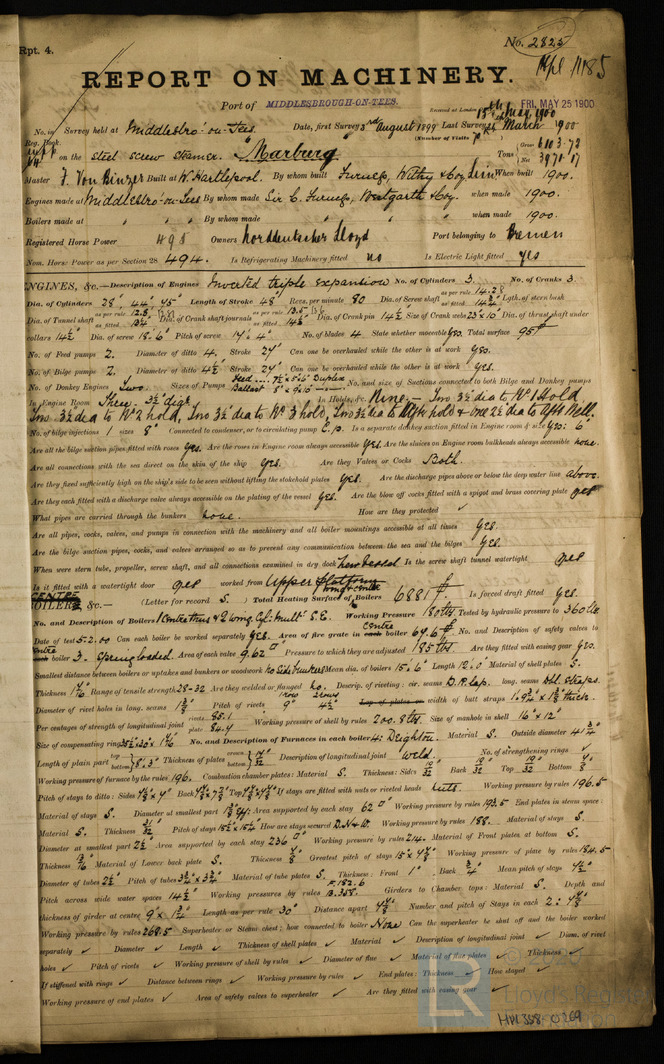 Rpt. 4.
No. 2825
REPORT ON MACHINERY.
Port of MIDDLESBROUGH-ON-TEES.
Received at London FRI. MAY 25 1900
No. in Survey held at Middlesbro'-on-Tees Date, first Survey 3rd August 1899 Last Survey March 1900
Reg. Book. (Number of Visits
on the steel screw steamer "Marburg" Tons Gross 6103.72 Net 3970.17
Master F. Von Binzer Built at W. Hartlepool. By whom built Furness, Withy & Coy When built 1900.
Engines made at Middlesbro'-on-Tees By whom made Sir C. Furness, Westgarth & Coy. when made 1900.
Boilers made at " " By whom made " " when made 1900.
Registered Horse Power 495 Owners Norddeutscher Lloyd Port belonging to Bremen
Nom. Horse Power as per Section 28 494. Is Refrigerating Machinery fitted no Is Electric Light fitted yes
ENGINES, &c.—Description of Engines Inverted triple expansion No. of Cylinders 3. No. of Cranks 3.
Dia. of Cylinders 28" 44" 75" Length of Stroke 48" Revs. per minute 80 Dia. of Screw shaft as per rule 14.28 as fitted 14¾" Lgth. of stern bush
Dia. of Tunnel shaft as per rule 12.8 as fitted 13¼" Dia. of Crank shaft journals as per rule 13.5 as fitted 14½" Dia. of Crank pin 14½" Size of Crank webs 23" x 10" Dia. of thrust shaft under
collars 14½" Dia. of screw 18'.6" Pitch of screw 17'.4" No. of blades 4 State whether moveable yes. Total surface 95
No. of Feed pumps 2. Diameter of ditto 4. Stroke 24" Can one be overhauled while the other is at work yes.
No. of Bilge pumps 2. Diameter of ditto 4½" Stroke 24" Can one be overhauled while the other is at work yes.
No. of Donkey Engines Two Sizes of Pumps Feed Duplex Ballast No. and size of Suctions connected to both Bilge and Donkey pumps
In Engine Room Three. 3½" dia In Holds, &c. Nine – Two 3½" dia to No 1 Hold
Two 3½ dia to No 2 hold, Two 3½ dia to No 3 hold, Two 3½ dia to Aft hold & one 2½ dia to Aft Well.
No. of bilge injections 1 sizes 8" Connected to condenser, or to circulating pump C.p. Is a separate donkey suction fitted in Engine room & size yes: 6"
Are all the bilge suction pipes fitted with roses yes. Are the roses in Engine room always accessible yes. Are the sluices on Engine room bulkheads always accessible none.
Are all connections with the sea direct on the skin of the ship yes. Are they Valves or Cocks Both.
Are they fixed sufficiently high on the ship's side to be seen without lifting the stokehold plates yes. Are the discharge pipes above or below the deep water line above.
Are they each fitted with a discharge valve always accessible on the plating of the vessel yes. Are the blow off cocks fitted with a spigot and brass covering plate yes
What pipes are carried through the bunkers none. How are they protected ✓
Are all pipes, cocks, valves, and pumps in connection with the machinery and all boiler mountings accessible at all times yes.
Are the bilge suction pipes, cocks, and valves arranged so as to prevent any communication between the sea and the bilges yes.
When were stern tube, propeller, screw shaft, and all connections examined in dry dock new vessel Is the screw shaft tunnel watertight yes
Is it fitted with a watertight door yes worked from Upper platform
CENTRE
BOILERS, &c.— (Letter for record S.) Total Heating Surface of Boilers 6881 Is forced draft fitted yes.
No. and Description of Boilers Working Pressure 180 lbs Tested by hydraulic pressure to 360 lbs
Date of test 5-2-00 Can each boiler be worked separately yes. Area of fire grate in centre boiler 69.6 No. and Description of safety valves to
centre boiler 3. Spring loaded. Area of each valve 9.62 Pressure to which they are adjusted 185 lbs Are they fitted with easing gear yes.
Smallest distance between boilers or uptakes and bunkers or woodwork no side bunkers Mean dia. of boilers 15'.6" Length 12'.0" Material of shell plates S.
Thickness Range of tensile strength 28-32 Are they welded or flanged no. Descrip. of riveting: cir. seams D.R. lap. long. seams dbl straps.
Diameter of rivet holes in long. seams 1⅜ Pitch of rivets 9" Lap of plates or width of butt straps
Per centages of strength of longitudinal joint rivets 85.1 plate 84.7 Working pressure of shell by rules 200.8 lbs. Size of manhole in shell 16" x 12"
Size of compensating ring No. and Description of Furnaces in each boiler 4: Deighton. Material S. Outside diameter 41¾"
Length of plain part top bottom Thickness of plates crown bottom Description of longitudinal joint weld. No. of strengthening rings ✓
Working pressure of furnace by the rules 196. Combustion chamber plates: Material S. Thickness: Sides 19/32 Back 19/32 Top 19/32 Bottom
Pitch of stays to ditto: Sides Back Top If stays are fitted with nuts or riveted heads nuts. Working pressure by rules 196.5
Material of stays S. Diameter at smallest part Area supported by each stay 62 Working pressure by rules 193.5 End plates in steam space:
Material S. Thickness Pitch of stays How are stays secured D.N.+W. Working pressure by rules 188. Material of stays S.
Diameter at smallest part 2½ Area supported by each stay 236 Working pressure by rules 214. Material of Front plates at bottom S.
Thickness Material of Lower back plate S. Thickness Greatest pitch of stays Working pressure of plate by rules 184.5
Diameter of tubes 2½" Pitch of tubes 3¾ x 3¾ Material of tube plates S. Thickness: Front 1" Back ¾" Mean pitch of stays
Pitch across wide water spaces 14½ Working pressures by rules F. 182.6 B. 358. Girders to Chamber tops: Material S. Depth and
thickness of girder at centre 9" x 1¾" Length as per rule 30" Distance apart Number and pitch of Stays in each 2:
Working pressure by rules 268.5 Superheater or Steam chest; how connected to boiler None Can the superheater be shut off and the boiler worked
separately ✓ Diameter ✓ Length ✓ Thickness of shell plates ✓ Material ✓ Description of longitudinal joint ✓ Diam. of rivet
holes ✓ Pitch of rivets ✓ Working pressure of shell by rules ✓ Diameter of flue ✓ Material of flue plates ✓ Thickness ✓
If stiffened with rings ✓ Distance between rings ✓ Working pressure by rules ✓ End plates: Thickness ✓ How stayed ✓
Working pressure of end plates ✓ Area of safety valves to superheater ✓ Are they fitted with easing gear ✓
LR
Lloyd's Register
HW358-0269